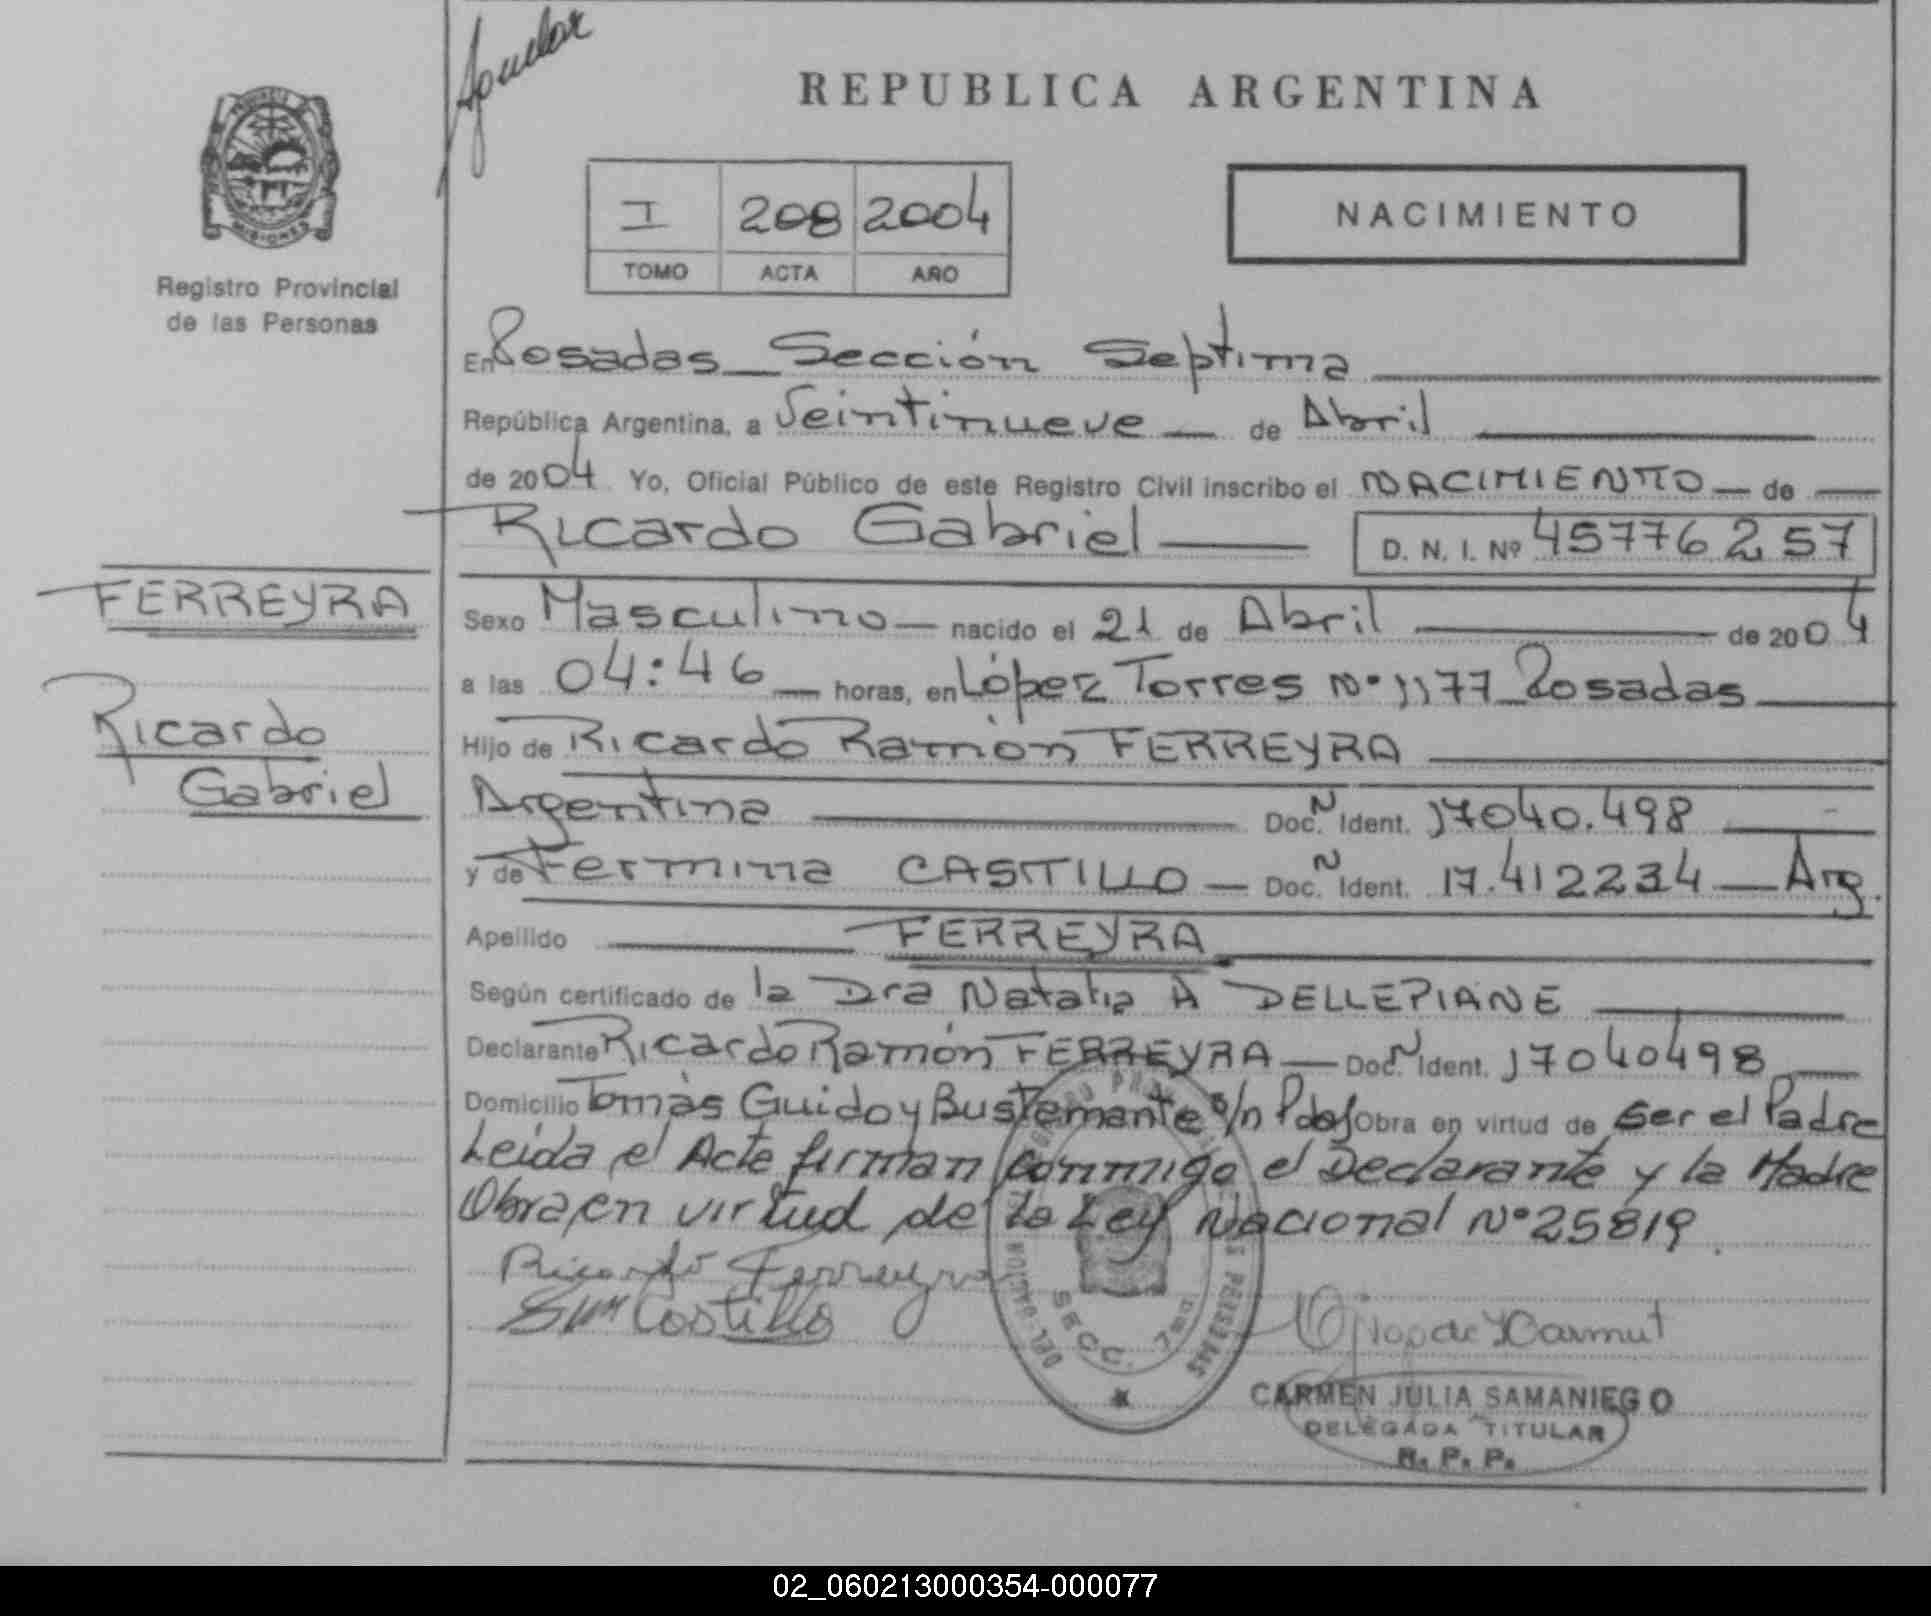 Aguilar
REPUBLICA ARGENTINA
PROVINCIA
MISIONES
Registro Provincial
de las Personas
I 208 2004
TOMO ACTA AÑO
NACIMIENTO
En Posadas Sección Septima
República Argentina, a Veintinueve de Abril
de 2004 Yo, Oficial Público de este Registro Civil inscribo el NACIMIENTO de
Ricardo Gabriel D. N. I. Nº 45776257
FERREYRA
Ricardo
Gabriel
Sexo Masculino nacido el 21 de Abril de 2004
a las 04:46 horas, en López Torres Nº 1177 Posadas
Hijo de Ricardo Ramón FERREYRA
Argentina Doc. N Ident. 17040.498
y de Fermina CASTILLO Doc. N Ident. 17.412234 Arg.
Apellido FERREYRA
Según certificado de la Dra Natalia A DELLEPIANE
Declarante Ricardo Ramón FERREYRA Doc. N Ident. 17040498
Domicilio Tomás Guido y Bustemante s/n Pdas Obra en virtud de Ser el Padre
Leída el Acta firman conmigo el Declarante y la Madre
Obra en virtud de la Ley Nacional Nº 25819.
Ricardo Ferreyra
Castillo
SECC. 7ma
CARMEN JULIA SAMANIEGO
DELEGADA TITULAR
R. P. P.
02_060213000354-000077